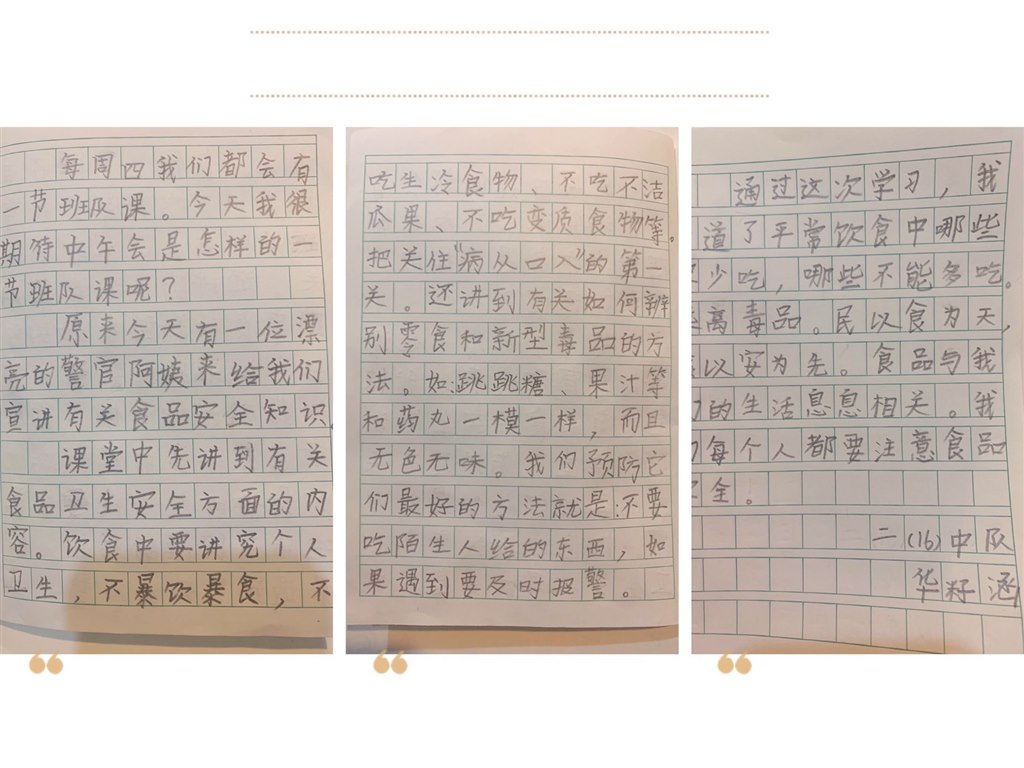 每周四我们都会有
一节班级课。今天我很
期待中午会是怎样的一
节班队课呢？
原来今天有一位漂
亮的警官阿姨来给我们
宣讲有关食品安全知识。
课堂中先讲到有关
食品卫生安全方面的内
容。饮食中要讲究个人
卫生，不暴饮暴食，不
吃生冷食物、不吃不洁
瓜果、不吃变质食物等。
把关住“病从口入”的第一
关。还讲到有关如何辨
别零食和新型毒品的方
法。如：跳跳糖、果汁等
和药丸一模一样，而且
无色无味。我们预防它
们最好的方法就是：不要
吃陌生人给的东西，如
果遇到要及时报警。
通过这次学习，我
道了平常饮食中哪些
少吃，哪些不能多吃。
离毒品。民以食为天，
以安为先。食品与我
的生活息息相关。我
每个人都要注意食品
安全。
二（16）中队
华籽涵